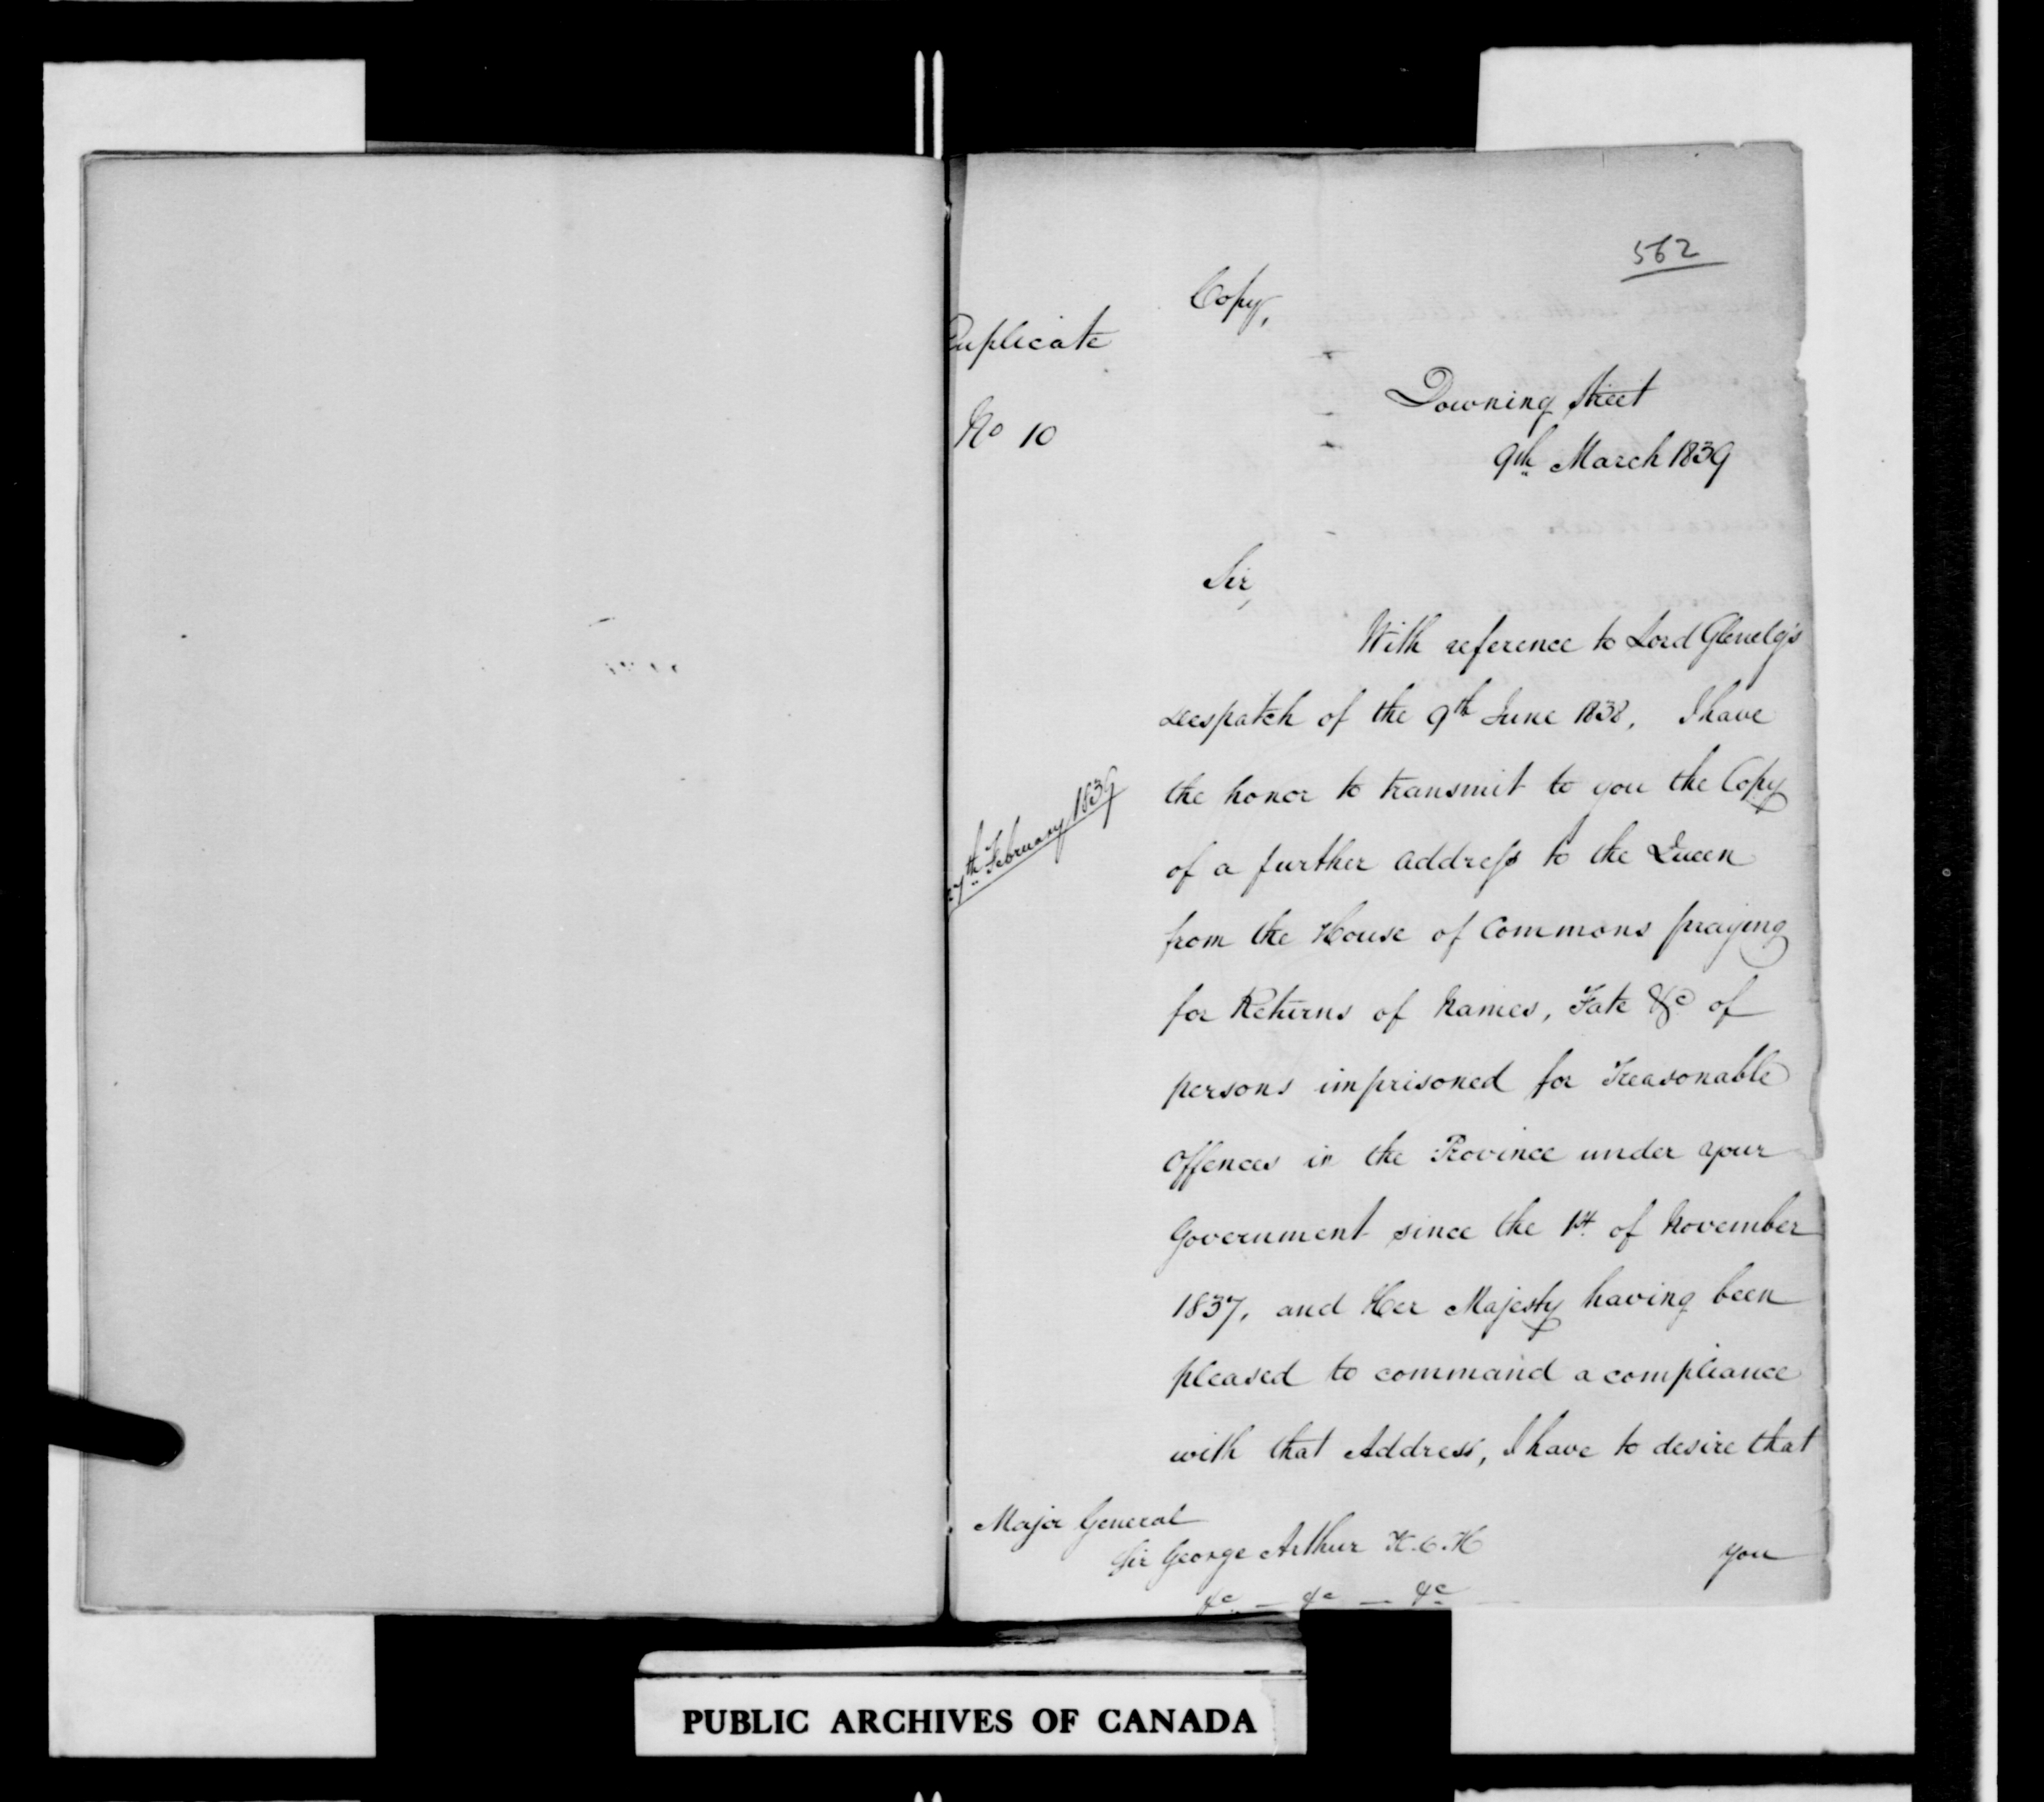 562
Copy,
Duplicate
No 10
Downing Street
9th March 1839
Sir,
With reference to Lord Glenelg's
Despatch of the 9th June 1838, I have
the honor to transmit to you the Copy
27th February 1839
of a further address to the Queen
from the House of Commons praying
for Returns of Names, Fate &c of
persons imprisoned for Treasonable
Offences in the Province under your
Government since the 1st of November
1837, and Her Majesty having been
pleased to command a compliance
with that Address, I have to desire that
Major General
Sir George Arthur K.C.H
&c — &c — &c
you
PUBLIC ARCHIVES OF CANADA